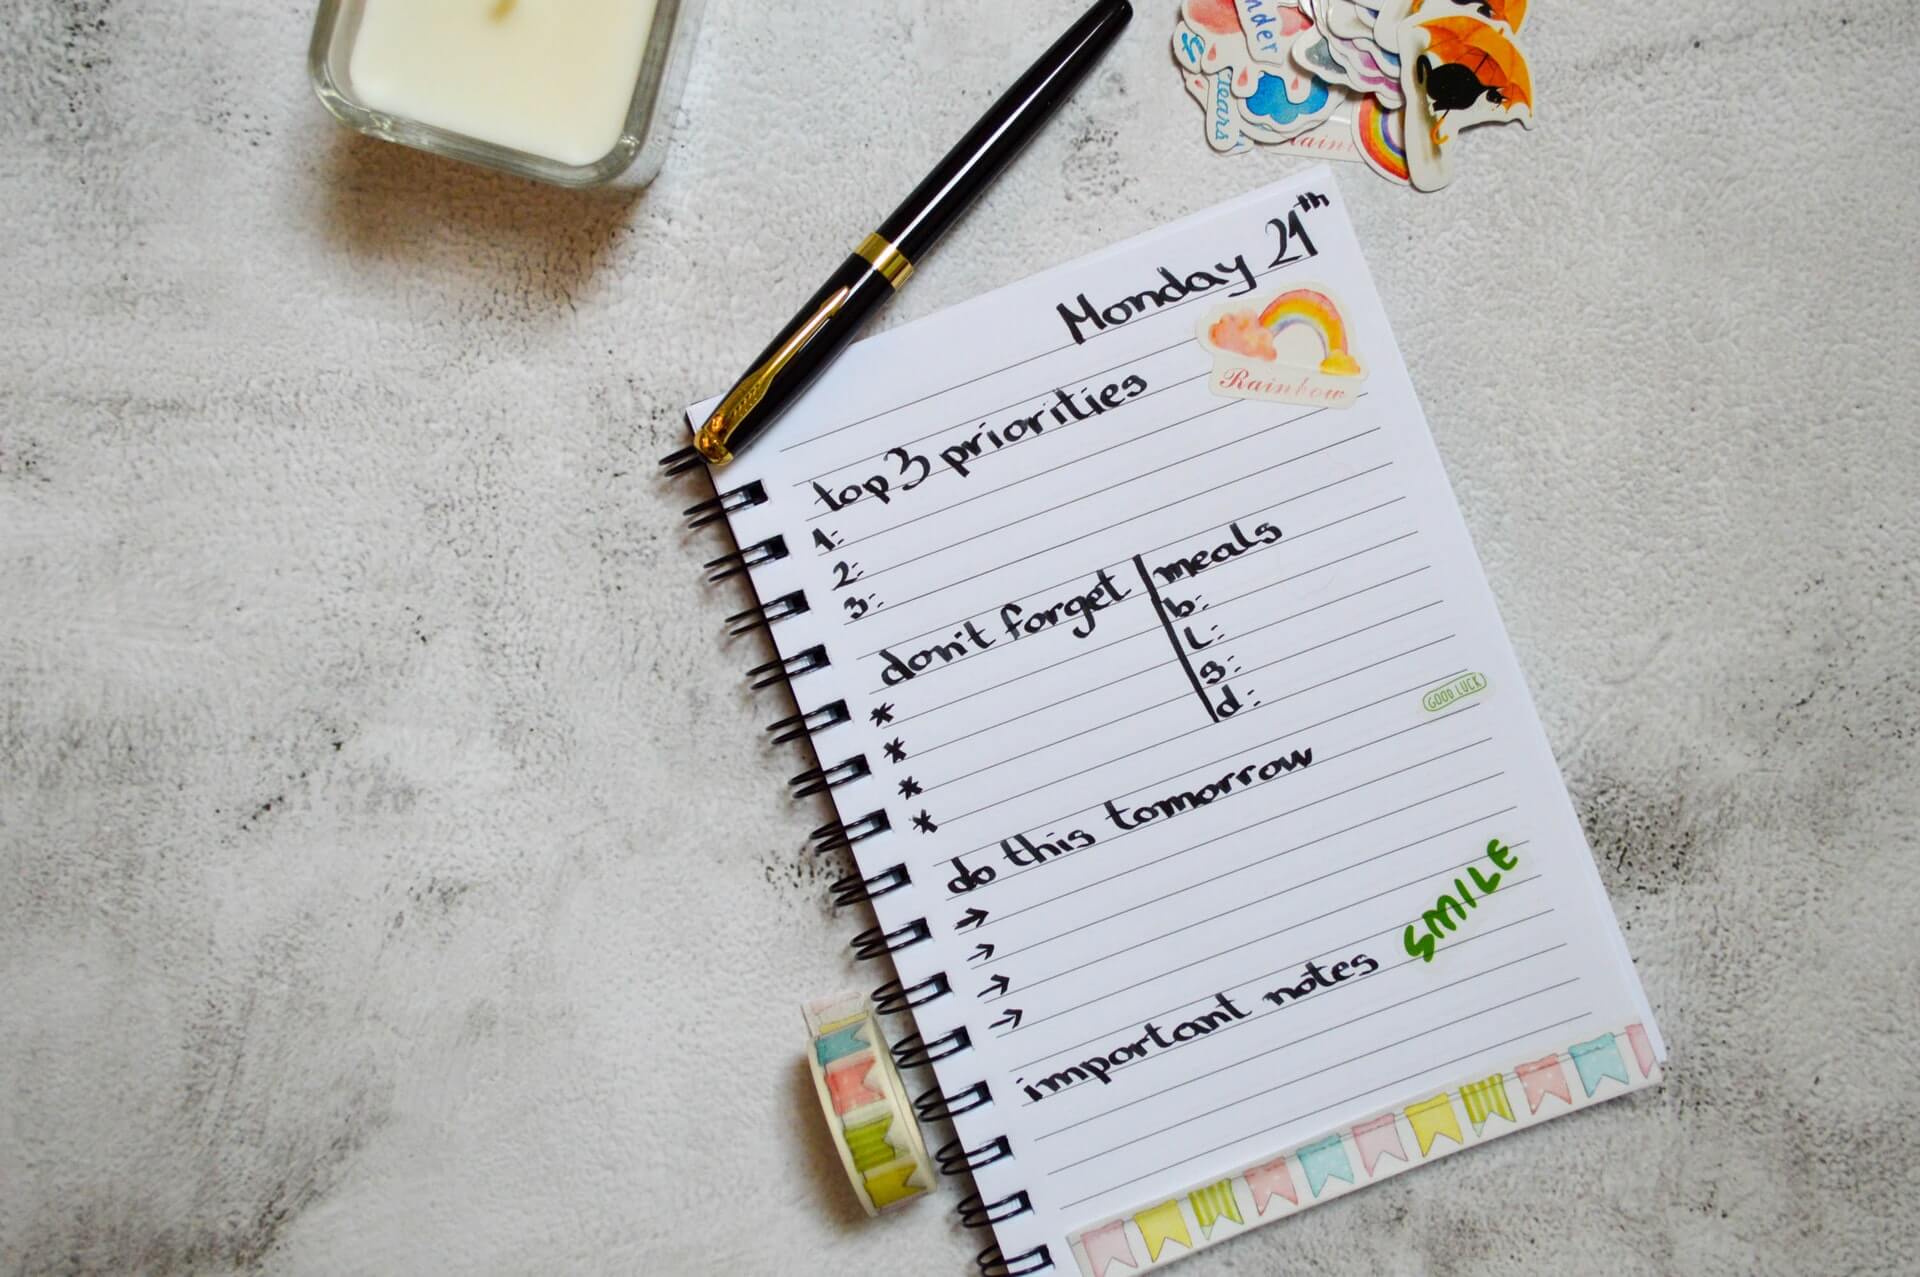 nder
tears
Monday 21th
Rainbow
top 3 priorities
1:
2:
3:
don't forget
*
*
*
*
meals
b:
L:
s:
d:
GOOD LUCK
do this tomorrow
→
→
→
→
SMILE
important notes